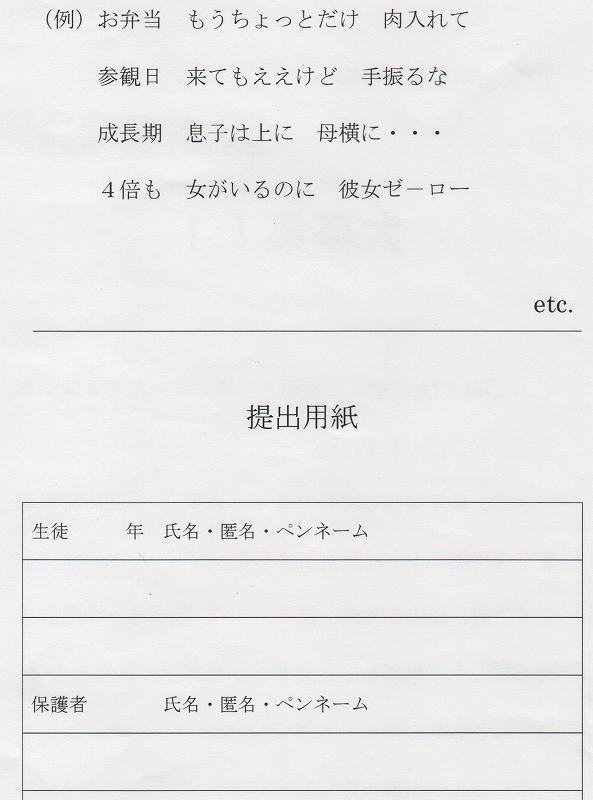 （例）お弁当　もうちょっとだけ　肉入れて
参観日　来てもええけど　手振るな
成長期　息子は上に　母横に・・・
４倍も　女がいるのに　彼女ゼ－ロー
etc.
提出用紙
生徒　　　年　氏名・匿名・ペンネーム
保護者　　　　氏名・匿名・ペンネーム